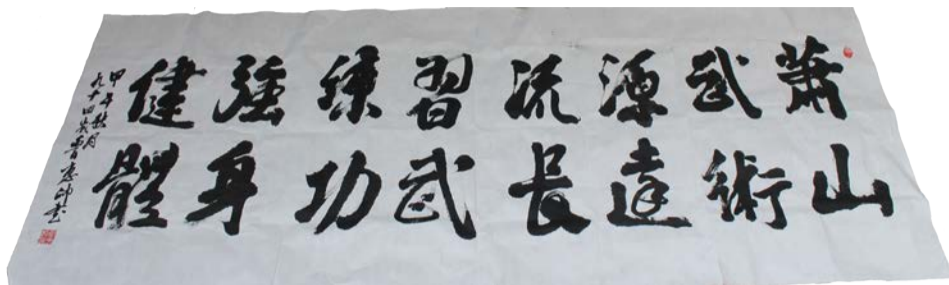 蕭山
武術
源達
流長
習武
練功
强身
健體
甲午秋月
九十四叟曹